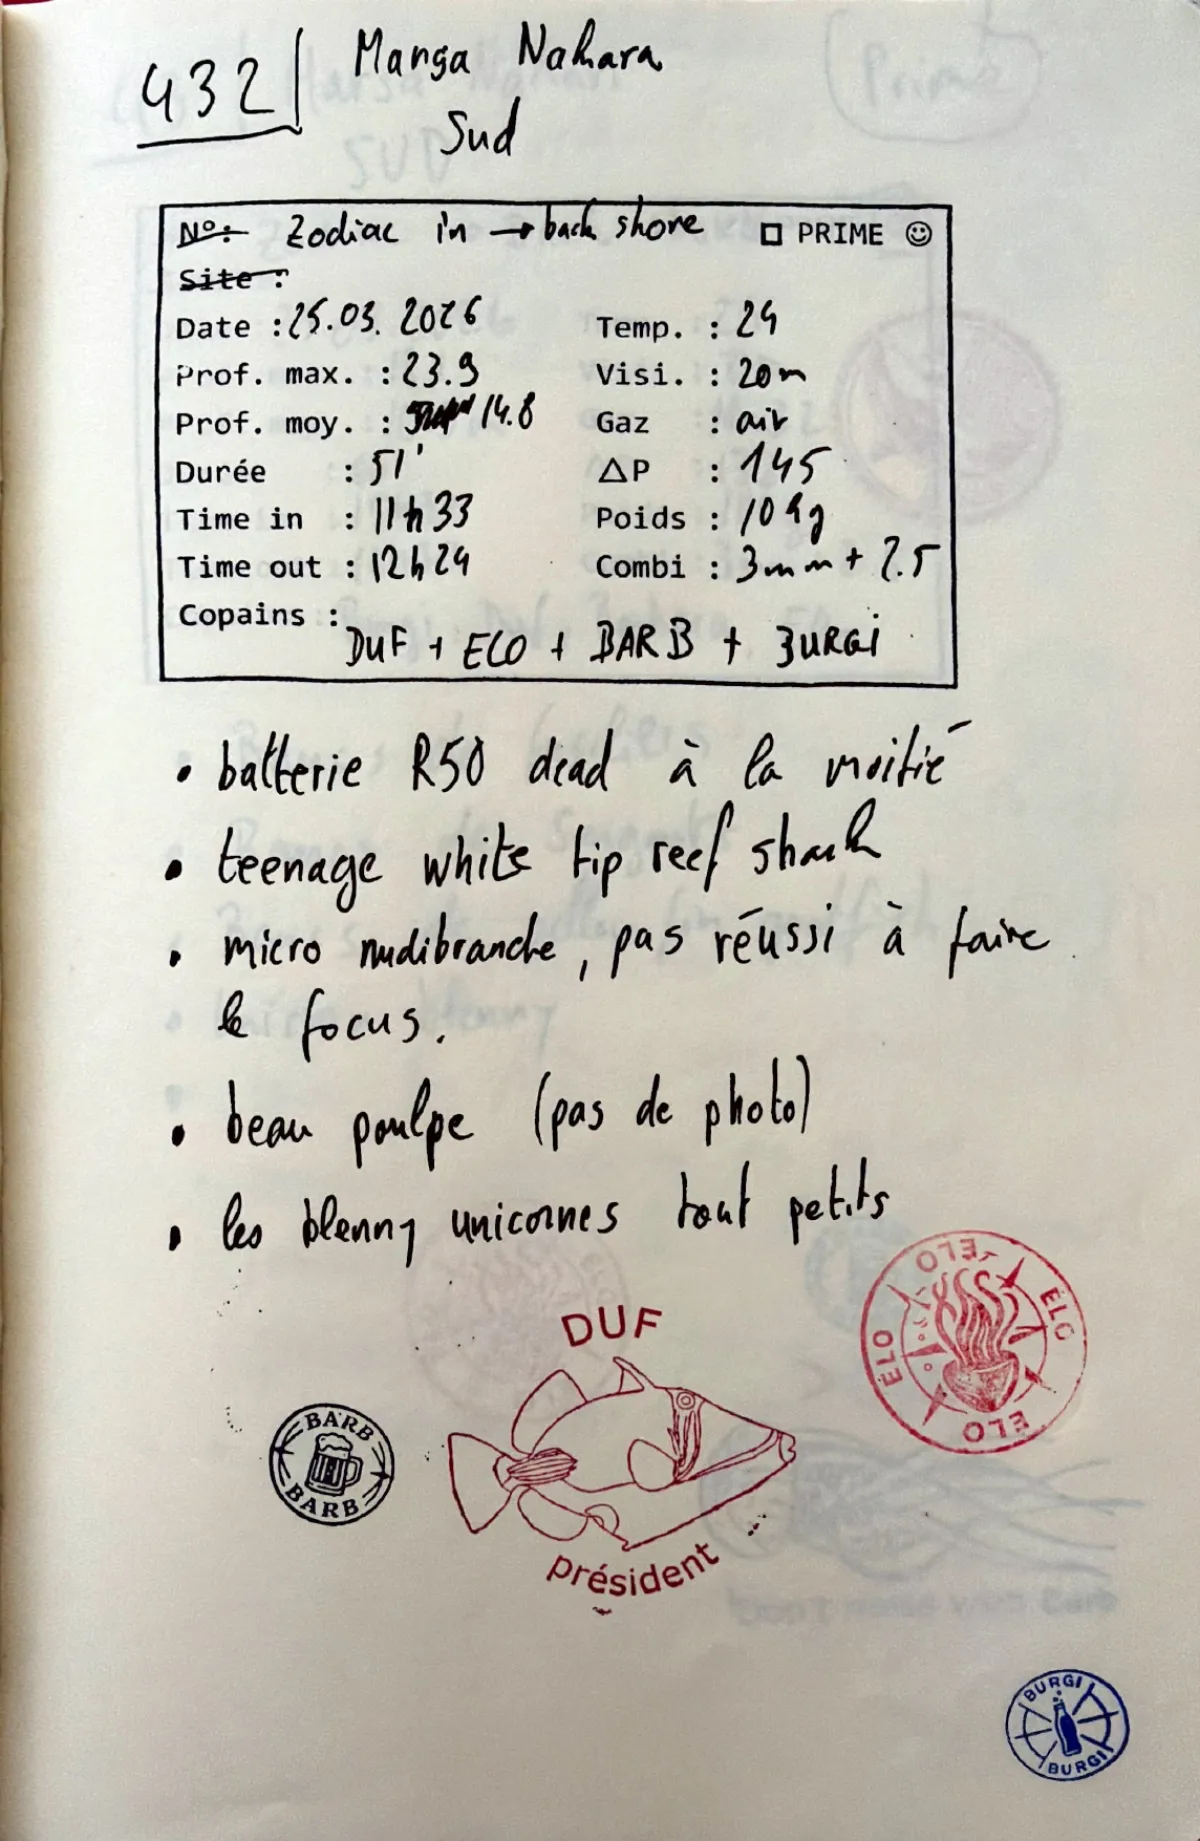 432
Manga Nahara
Sud
N°: Zodiac in → back shore □ PRIME ☺
Site :
Date : 25.03.2026
Temp. : 24
Prof. max. : 23.9
Visi. : 20m
Prof. moy. : 14.8
Gaz : air
Durée : 51'
ΔP : 145
Time in : 11h33
Poids : 10kg
Time out : 12h24
Combi : 3mm + 2.5
Copains :
DUF + ELO + BARB + BURGi
• batterie R50 dead à la moitié
• teenage white tip reef shark
• micro nudibranche, pas réussi à faire
le focus.
• beau poulpe (pas de photo)
• les blenny unicornes tout petits
ÉLO ÉLO ÉLO ÉLO
DUF
président
BARB
BARB
BURGI
BURGI